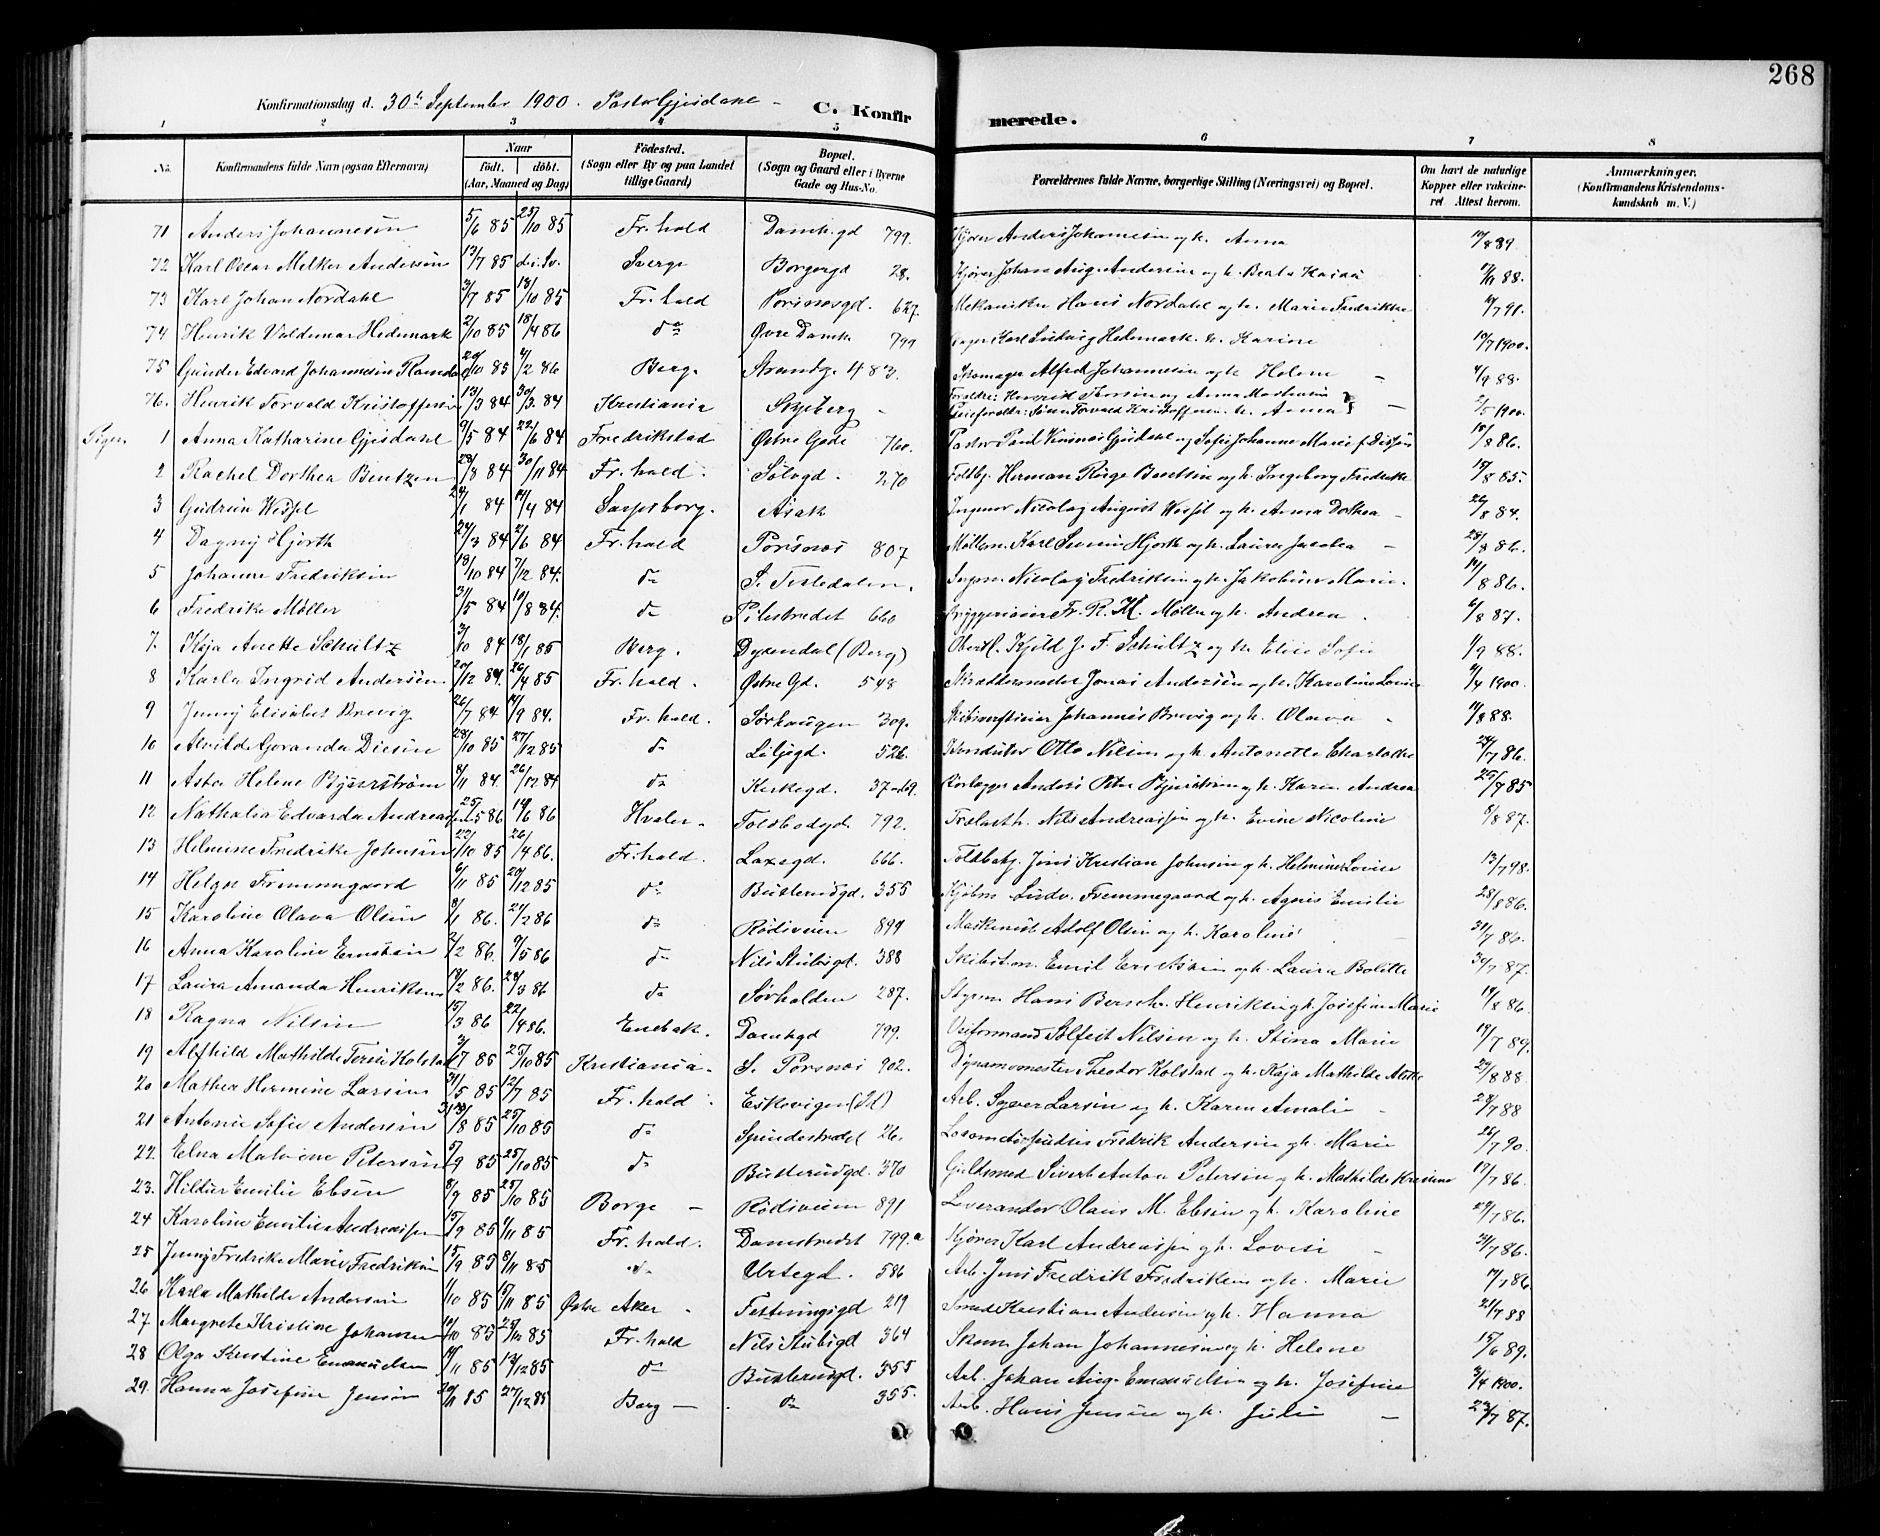 268
Konfirmationsdag d. 30te September 1900. Pastor Gjesdahl – C. Konfirmerede.
1 2 3 4 5 6 7 8
No. Konfirmandens fulde Navn (ogsaa Efternavn) Naar født. døbt. (Aar, Maaned og Dag) Fødested. (Sogn eller By og paa Landet tillige Gaard) Bopæl. (Sogn og Gaard eller i Byerne Gade og Hus-No. Forældrenes fulde Navne, borgerlige Stilling (Næringsvei) og Bopæl. Om havt de naturlige Kopper eller vakcineret Attest herom. Anmærkninger. (Konfirmandens Kristendomskundskab m. V.)
71 Anders Johannesen 5/6 85 25/10 85 Fr.hald Damh.gd 799. Kjører Anders Johannesen og h. Anna 89.
72 Karl Oscar Melker Andersen 13/7 85 do. Sv. Sverge Borgergd 28. Kjører Johan Aug. Andersen og h. Beata 88.
73 Karl Johan Nordahl 3/7 85 18/10 85 Fr.hald Porsnesgd. 627. Mekaniker Hans Nordahl og h. Marie Fredrikke 91.
74 Henrik Valdemar Hedemark 2/10 85 18/4 86 do Øvre Damh. 799 Karl Ludvig Hedemark. h. Karine 10/7 1900.
75 Gunder Edvard Johannesen 20/10 85 /2 86 Berg Strandg. 483. Skomager Alfred Johannesen og h. Helene – /9 88.
76. Henrik Torvald Kristoffersen 13/3 84 30/3. 84 Kristiania Skjeberg – Forældre: Henrik Jensen og Anna
Pleieforældre: Søren Torvald Kristoffersen. h. Anna – 2/5 1900.
Piger 1 Anna Katharine Gjesdahl 9/5 84 22/6 84 Fredrikstad Østre Gade 760. Pastor Paul Gjesdahl og Sofie Johanne Marie f. 18/8 86.
2 Rachel Dorthea Bentzen 28/8 84 30/11 84 Fr.hald. Sølvgd. 270 Toldbj. Herman Bentzen og h. Ingeborg Fredrikke 15/8 85.
3 Gudrun Wessel /1 84 14/4 84 Sarpsborg. Asak Ingeniør Nicolay August Wessel og h. Anna Dorthea – 26/8 84.
4 Dagny Hjorth 24/3 84 2/6 84 Fr.hald Porsnes 807 Møllerm. Karl Hjorth og h. Laura Jacobea – 28/8 86.
5 Johanne Fredriksen 18/10 84 7/12 84. do S. Tistedalen. Nicolay Fredriksen og h. Jakobine Marie. 14/8 86.
6 Fredrike Møller 31/5 84 10/8 84. do Pilestrædet 660 Fr. R. H. Møller og h. Andrea. 6/8 87.
7. Kaja Anette Schultz 3/10 84 18/1 85 Berg. Dyrendal (Berg) Kjeld J. F. Schultz og h. Elise Sofie 1/9 88.
8 Karla Ingrid Andersen 20/12 84. 26/4 85 Fr.hald. Østre Gd. 548 Skræddermester Jonas Andersen og h. Karoline Lovise /4 1900.
9 Jenny Elisabet Brevig 26/7 84 14/9 84. Fr.hald. Sørhaugen 309. Johannes Brevig og h. Olava – /8 88.
10 Alvilde Diesen 28/10 85 27/12 85 do Liljegd. 526. Konduktør Otto Nilsen og h. Antonette Charlotte 28/7 86.
11 Asta Helene Bjerstrøm 8/11 84. 26/12 84 do Kirkegd. Anders Peter Bjerstrøm og h. Karen Andrea 25/7 85
12 Nathalia Edvarda Andreassen 25/ 86 14/6 86 Hvaler. Toldbodgd. 792. Trælasth. Nils Andreassen og h. Evine Nicoline 8/8 87.
13 Helmine Fredrike Johnsen 22/10 85 26/4 86. Fr.hald. Laxegd. 666. Toldbetj. Jens Kristian Johnsen og h. Helmine Lovise 13/7 98.
14 Helga Fremmegaard 6/11 85 20/12 85 do Busterudgd. 355 Kjøbm. Ludv. Fremmegaard og h. Agnes Emilie 28/8 86.
15 Karoline Olava Olsen 8/1 86. 27/2 86 do Rødsveien 899 Maskinist Adolf Olsen og h. Karoline 31/7 86.
16 Anna Karoline Eriksen 2/2 86. 9/5 86 do Nils Stubsgd. 388 Emil Eriksen og h. Laura Bolette /7 87.
17 Laura Amanda Henriksen /2 86. 28/3 86 do Sørhalden 287. Styrm. Hans Henriksen og h. Josefine Marie 19/8 86.
18 Ragna Nilsen 15/3 86 22/4 86. Enebak. Damhgd 799. Nilsen og h. Stina Marie 17/7 89.
19 Alfhild Mathilde Holstad 3/7 85 25/10 85 Kristiania. S. Porsnes 902. Theodor Kolstad og h. Kaja Mathilde 29/8 88.
20 Mathea Hermine Larsen 31/5 85 12/7 85 Fr.hald. Eskevigen (Id) Arb. Syver Larsen og h. Karen Amalie – 28/7 88
21 Antonie Sofie Andersen /8 85 25/10 85 do 26. Fredrik Andersen og h. Marie 26/7 90.
22. Elna Malvine Petersen 5/9 85 25/10 85 do Busterudgd. 370 Guldsmed Sivert Anton Petersen og h. Mathilde Kristine 17/7 86.
23. Hildur Emilie Ebsen 8/9 85 25/10 85 Borge – Rødsveien 891 Leverandør Olaus M. Ebsen og h. Karoline /7 86.
24 Karoline Emilie Andreassen 15/9 85 /11 85 Fr.hald. Damstrædet 799.a Kjører Karl Andreassen og h. Lovise – /7 86.
25 Jenny Fredrike Marie Fredriksen 15/9 85 8/11 85 do Urtegd. 586 Arb. Jens Fredrik Fredriksen og h. Marie 17/7 86
26 Karla Mathilde Andersen /10 85 15/11 85 Østre Aker. Festningsgd 219 Smed Kristian Andersen og h. Hanna 21/7 88
27 Margrete Kristine Johansen /10 85 25/12 85 Fr.hald Nils Stubsgd 364 Skom. Johan Johannesen og h. Helene 15/6 89.
28 Olga Kristine Emanuelsen /11 85 13/12 85 do Busterudgd. 355 Arb. Johan Aug. Emanuelsen og h. Josefine 3/4 1900.
29. Hanna Josefine Jensen 20/11 85 27/12 85 Berg – . do 355. Arb. Hans Jensen og h. Julie – 23/7 87.